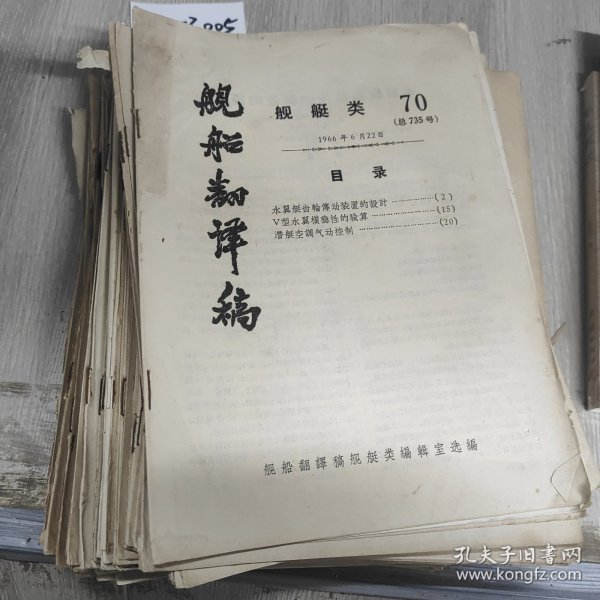 舰船翻譯稿
舰艇类 70
(总735号)
1966年6月22日
目录
水翼艇齿輪傳动装置的設計 ……………(2)
V型水翼横稳性的驗算 ……………(15)
潛艇空調气动控制 ……………(20)
舰船翻譯稿舰艇类編輯室选編
孔夫子旧书网
www.kongfz.com